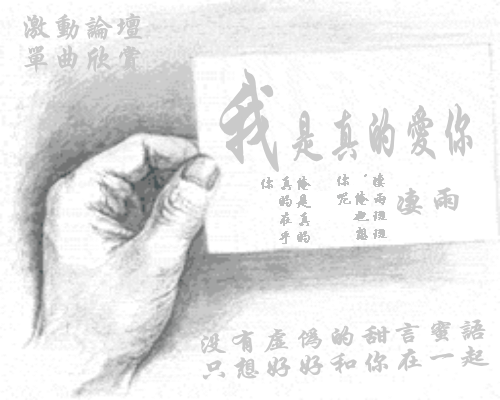 激動論壇
單曲欣賞
我是真的愛你
凄雨
凄雨
，俺也想
你呢
俺是真的
真的在乎
你
沒有虛偽的甜言蜜語
只想好好和你在一起